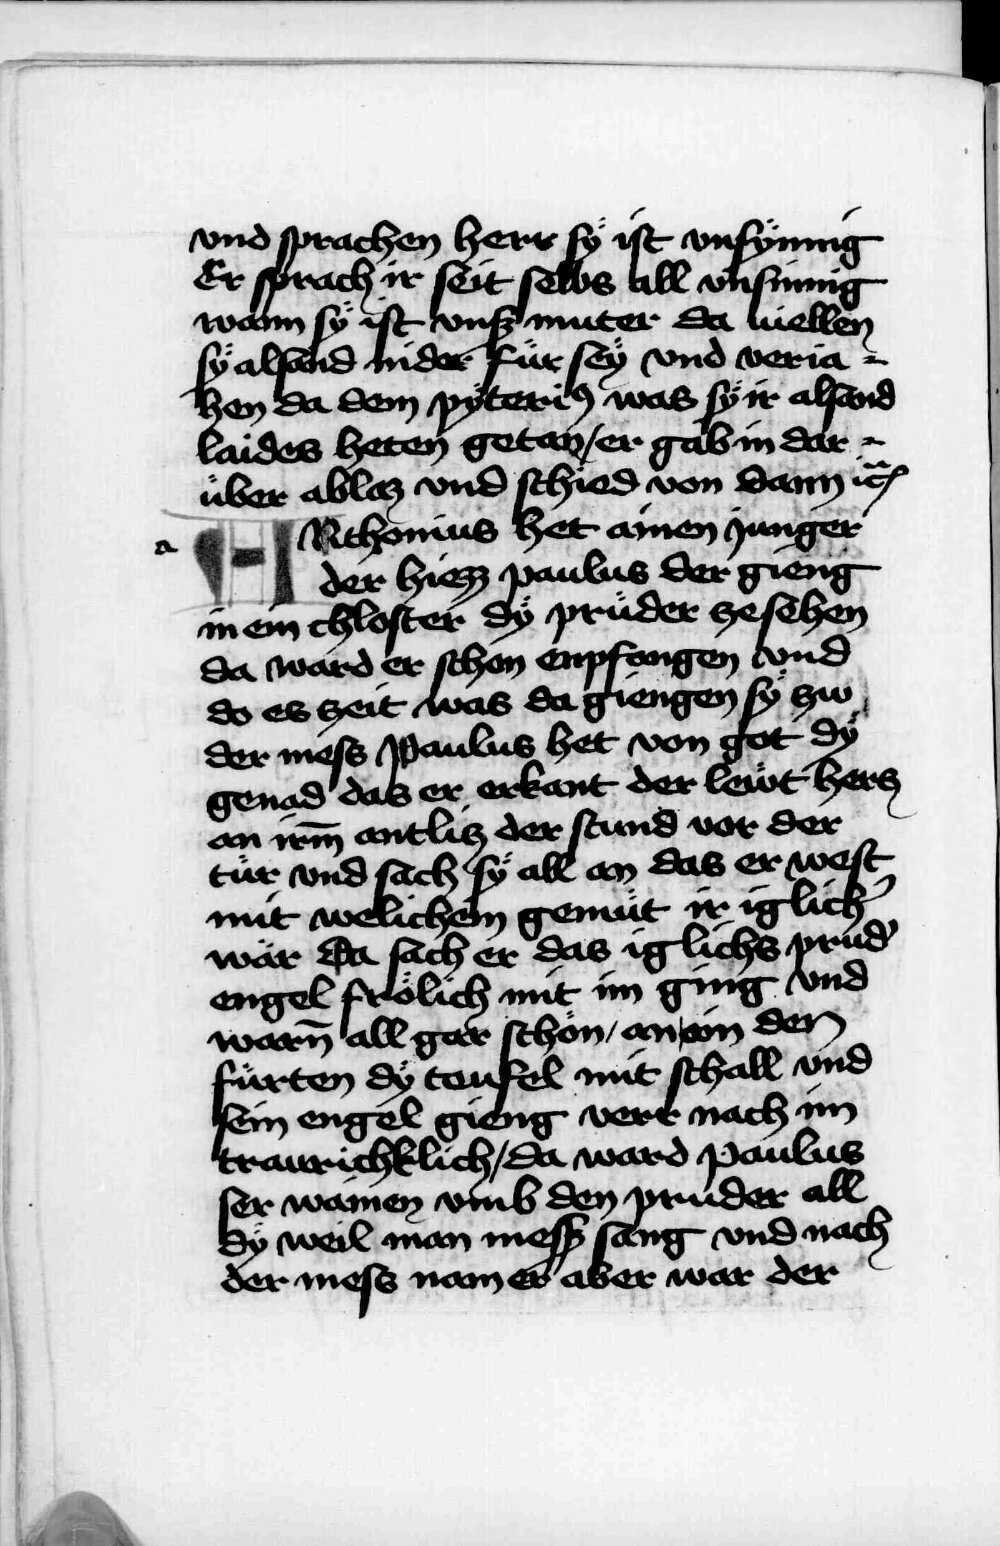 vnd sprachen herr sÿ ist vnsÿnnig
Er sprach ir seit selbs all vnsinnig
wann sÿ ist vnsz muter da uiellen
sÿ alsand nider für seÿ vnd veria =
hen da dem pÿterig was sÿ ir alsand
laides heten getan / er gab in dar =
über ablaz vnd schied von dann
a ANthonius het ainen junger
der hiezz paulus der gieng
in ein chloster dÿ prüder ze sehen
da ward er schon enpfangen vnd
do es zeit was da giengen sÿ zw
der mess Paulus het von got dÿ
genad das er erkant der lewt hercz
an irm̄ antlicz der stund vor der
tür vnd sach sÿ all an das er west
mit welichem gemüt ir iglich'
wär Da sach er das iglichs prüd'
engel frölich mit im ging vnd
warn̄ all gar schön / an ain den
fürten dÿ teufel mit schall vnd
sein engel gieng verr nach im
traurichklich / da ward paulus
ser wainen vmb den prüder all
dÿ weil man mess sang vnd nach
der mess nam er aber war der